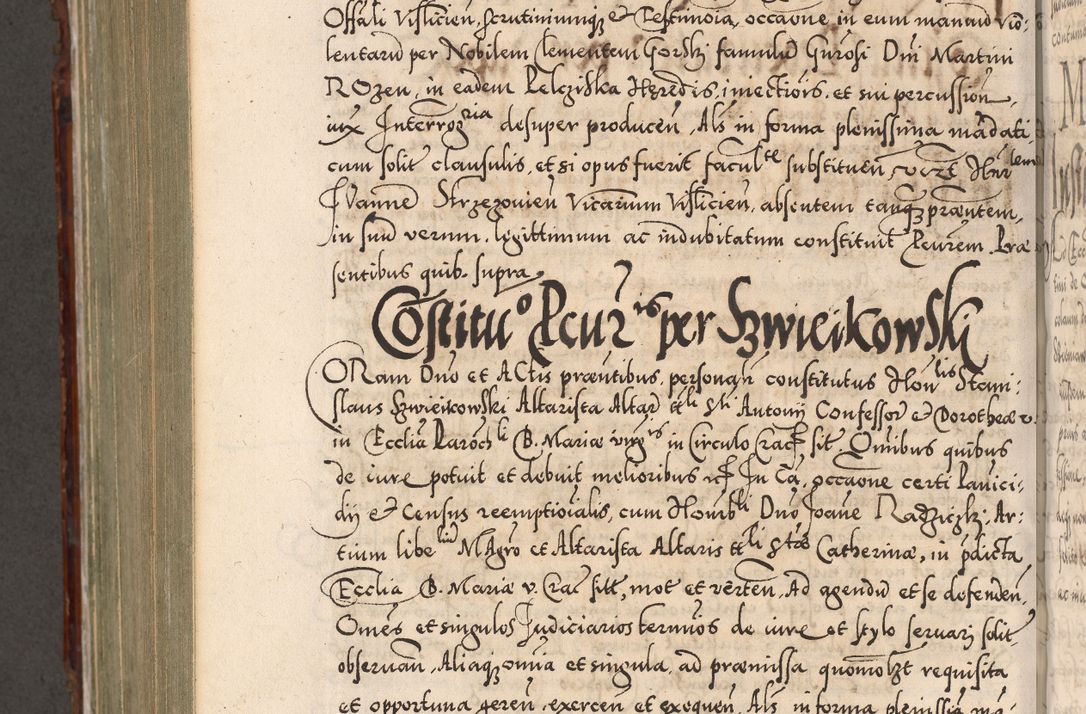 Offāli Visliciēn, Scrutiniumqȝ et Testimōia, occāone in eum manuū vio-
lentarū per Nobilem Clementem Gorski famulū Gñrosi Dñi Martini
ROzen, in eadem Pelcziska Hæredis, iniectiōis, et sui percussion,
iux Interrog ria desuper produceñ, Als in forma plenissima mādati
cum solit clausulis, et si opus fuerit facul te substitueñ
IOanne Strzezowieñ Vicarium Vislicieñ, absentem tanqȝ præntem,
in suū verum, legittimum ac indubitatum constituit Pcurem. Præ
sentibus quib. supra.
Cōstitu o Pcur is per Szwieikowski
CORam Dño et ACtis præntibus, personaľr constitutus Hon lis Stani-
slaus Szwieikowski Altarista Altar tt li S ti Antonij Confessor et Dorotheæ v.
in Ecclia Paroch li B. Mariæ virg is in Circulo Crac sit Omibus quibus
de iure potuit et debuit melioribus In Cā, occāone certi Pauici-
dij et Census reemptioīalis, cum Honāb li Dño Joāne Radziczki, Ar-
tium libe liū MAgro et Altarista Altaris tt li S tæ Catherinæ, in pdicta
Ecclia B. Mariæ v. Crac sitt, mot et vērteñ, Ad agendū et se defendeñ,
Omēs et singulos Judiciarios termīos de iure et stylo seruarj solit
obseruañ, Aliaqȝ omīa et singula, ad præmissa quomolȝt requisita
et opportuna gereñ, exerceñ et exequeñ, Als in forma plenissīa mā-